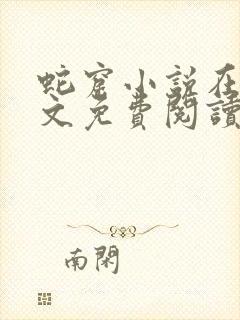 蛇窟小說在
文免費閱讀
南閑